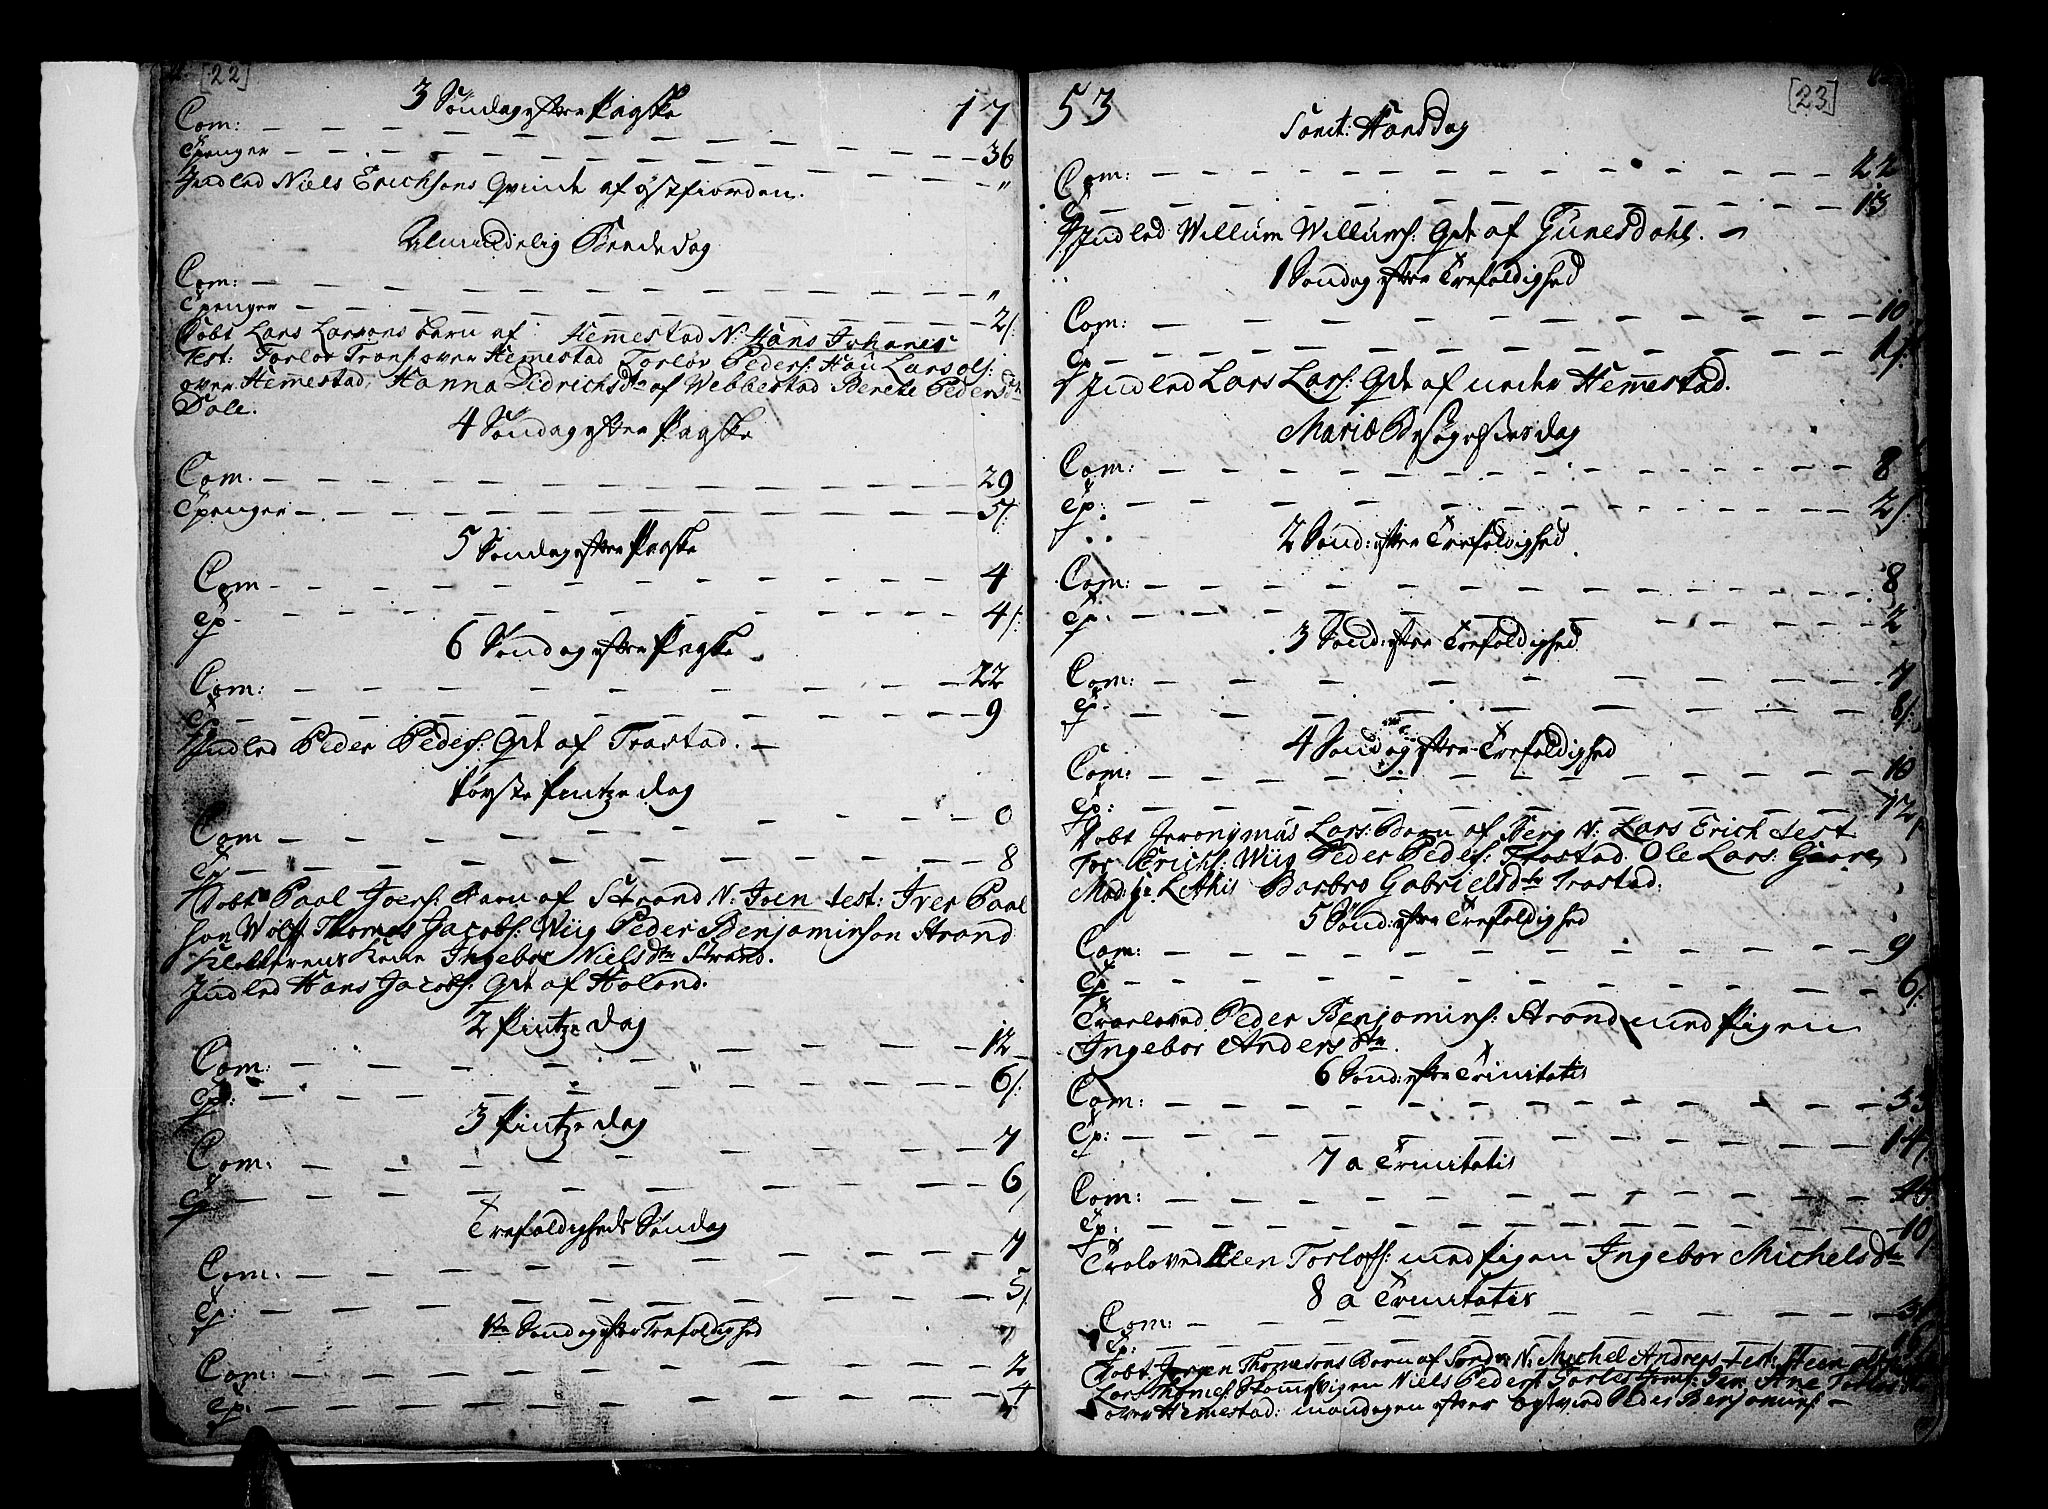 [22]
3 Søndag efter Paaske 17
Com:
Tpenger 36
Indled Niels Erichsens Qvinde af østfiorden. "
Almindelig Beededag
Com: "
Tpenger 2/:
Døbt Lars Larsens barn af Hemestad N: Hans Johanes
Test: Torlov over Hemestad Torlov Peders: Lars ols:
over Hemestad, Hanna Didrichsdr af Vebbestad Berete Pedersdtr
Dale.
4 Søndag efter Paaske
Com. 29
Tpenger 5/:
5 Søndag efter Paaske
Com 4
Tp. 4/:
6 Søndag efter Paaske
Com: 22
Tp 9
Indled Peder Peders: Qvt af Trastad.
Første Pintze dag
Com 0
Tp 8
Døbt Paal Joers: Barn af Strand N: Joen test: Iver Paal
sen Wolf, Thomes Jacobs: Wiig Peder Benjaminsen Strand
Klokkerens Kone Ingebor Nielsdtr Strand.
Indled Hans Jacobs: Qvt af Holand.
2 Pintze dag
Com: 12
Tp: 6/:
3 Pintze dag
Com: 7
Tp 6/
Trefoldigheds Søndag
Com: 7
Tp: 5/:
1te Søndag efter Trefoldighed
Com: 2
Tp: 4
[23]
53
Sanct: Hansdag
Com: 22
Tp 13
Indled Willum Willums: Qvt af Gunesdahl.
1 Søndag efter Trefoldighed
Com: 10
Tp 1/:
Indled Lars Lars: Qvt af under Hemestad.
Mariæ Besøgelses dag
Com: 8
Tp: 2/:
2 Sønd: efter Trefoldighed
Com: 8
Tp: 2
3 Sønd: efter Trefoldighed
Com: 7
Tp 6/:
4 Søndag efter Trefoldighed
Com: 10
Tp: 12/
Døbt Jeronymus Lars: Barn af Berg N: Lars Erich test
Tor Erichs: Wiig Peder Peders: Trastad. Ole Lars:
Barbro Gabrielsdtr Trastad.
5 Sønd: efter Trefoldighed
Com: 9
Tp 6/:
Troeloved Peder Benjamins: Strand med Pigen
Ingebor Andersdtr.
6 Sønd: efter Trinitatis
Com: 33
Tp: 14/
7 a Trinitatis
Com:
Tp: 10/:
Troloved Torlofs: med Pigen Ingebor Michelsdtr
8 a Trinitatis
Com:
Tp:
Døbt Jørgen Thomesens Born af N: Michel Andreas Test:
Lars Thomes: Niels Peders: Ane
over Hemestad: mandagen efter Peder Benjamins: